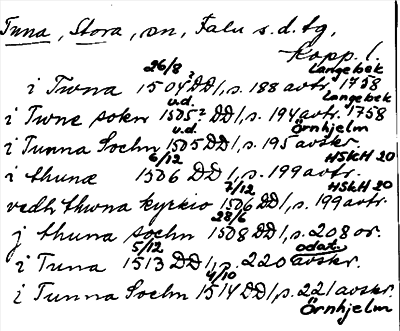 Tuna, Stora, sn, Falu s.d. tg,
Kopp. l.
26/8 Langebek
i Twna 1504? DD1, s. 188 avtr. 1758
u.d. Langebek
i Twne sokn 1505? DD1, s. 194 avtr. 1758
u.d. Örnhjelm
i Tunna Sochn 1505 DD1, s. 195 avskr.
6/12 HSKH 20
i thunæ 1506 DD1, s. 199 avtr.
7/12 HSKH 20
vedh thwna kyrkio 1506 DD1, s. 199 avtr.
28/6
j thuna sochn 1508 DD1, s. 208 or.
5/12 odat.
i Tuna 1513 DD1, s. 220 avskr.
4/10
i Tunna Sochn 1514 DD1, s. 221 avskr.
Örnhjelm